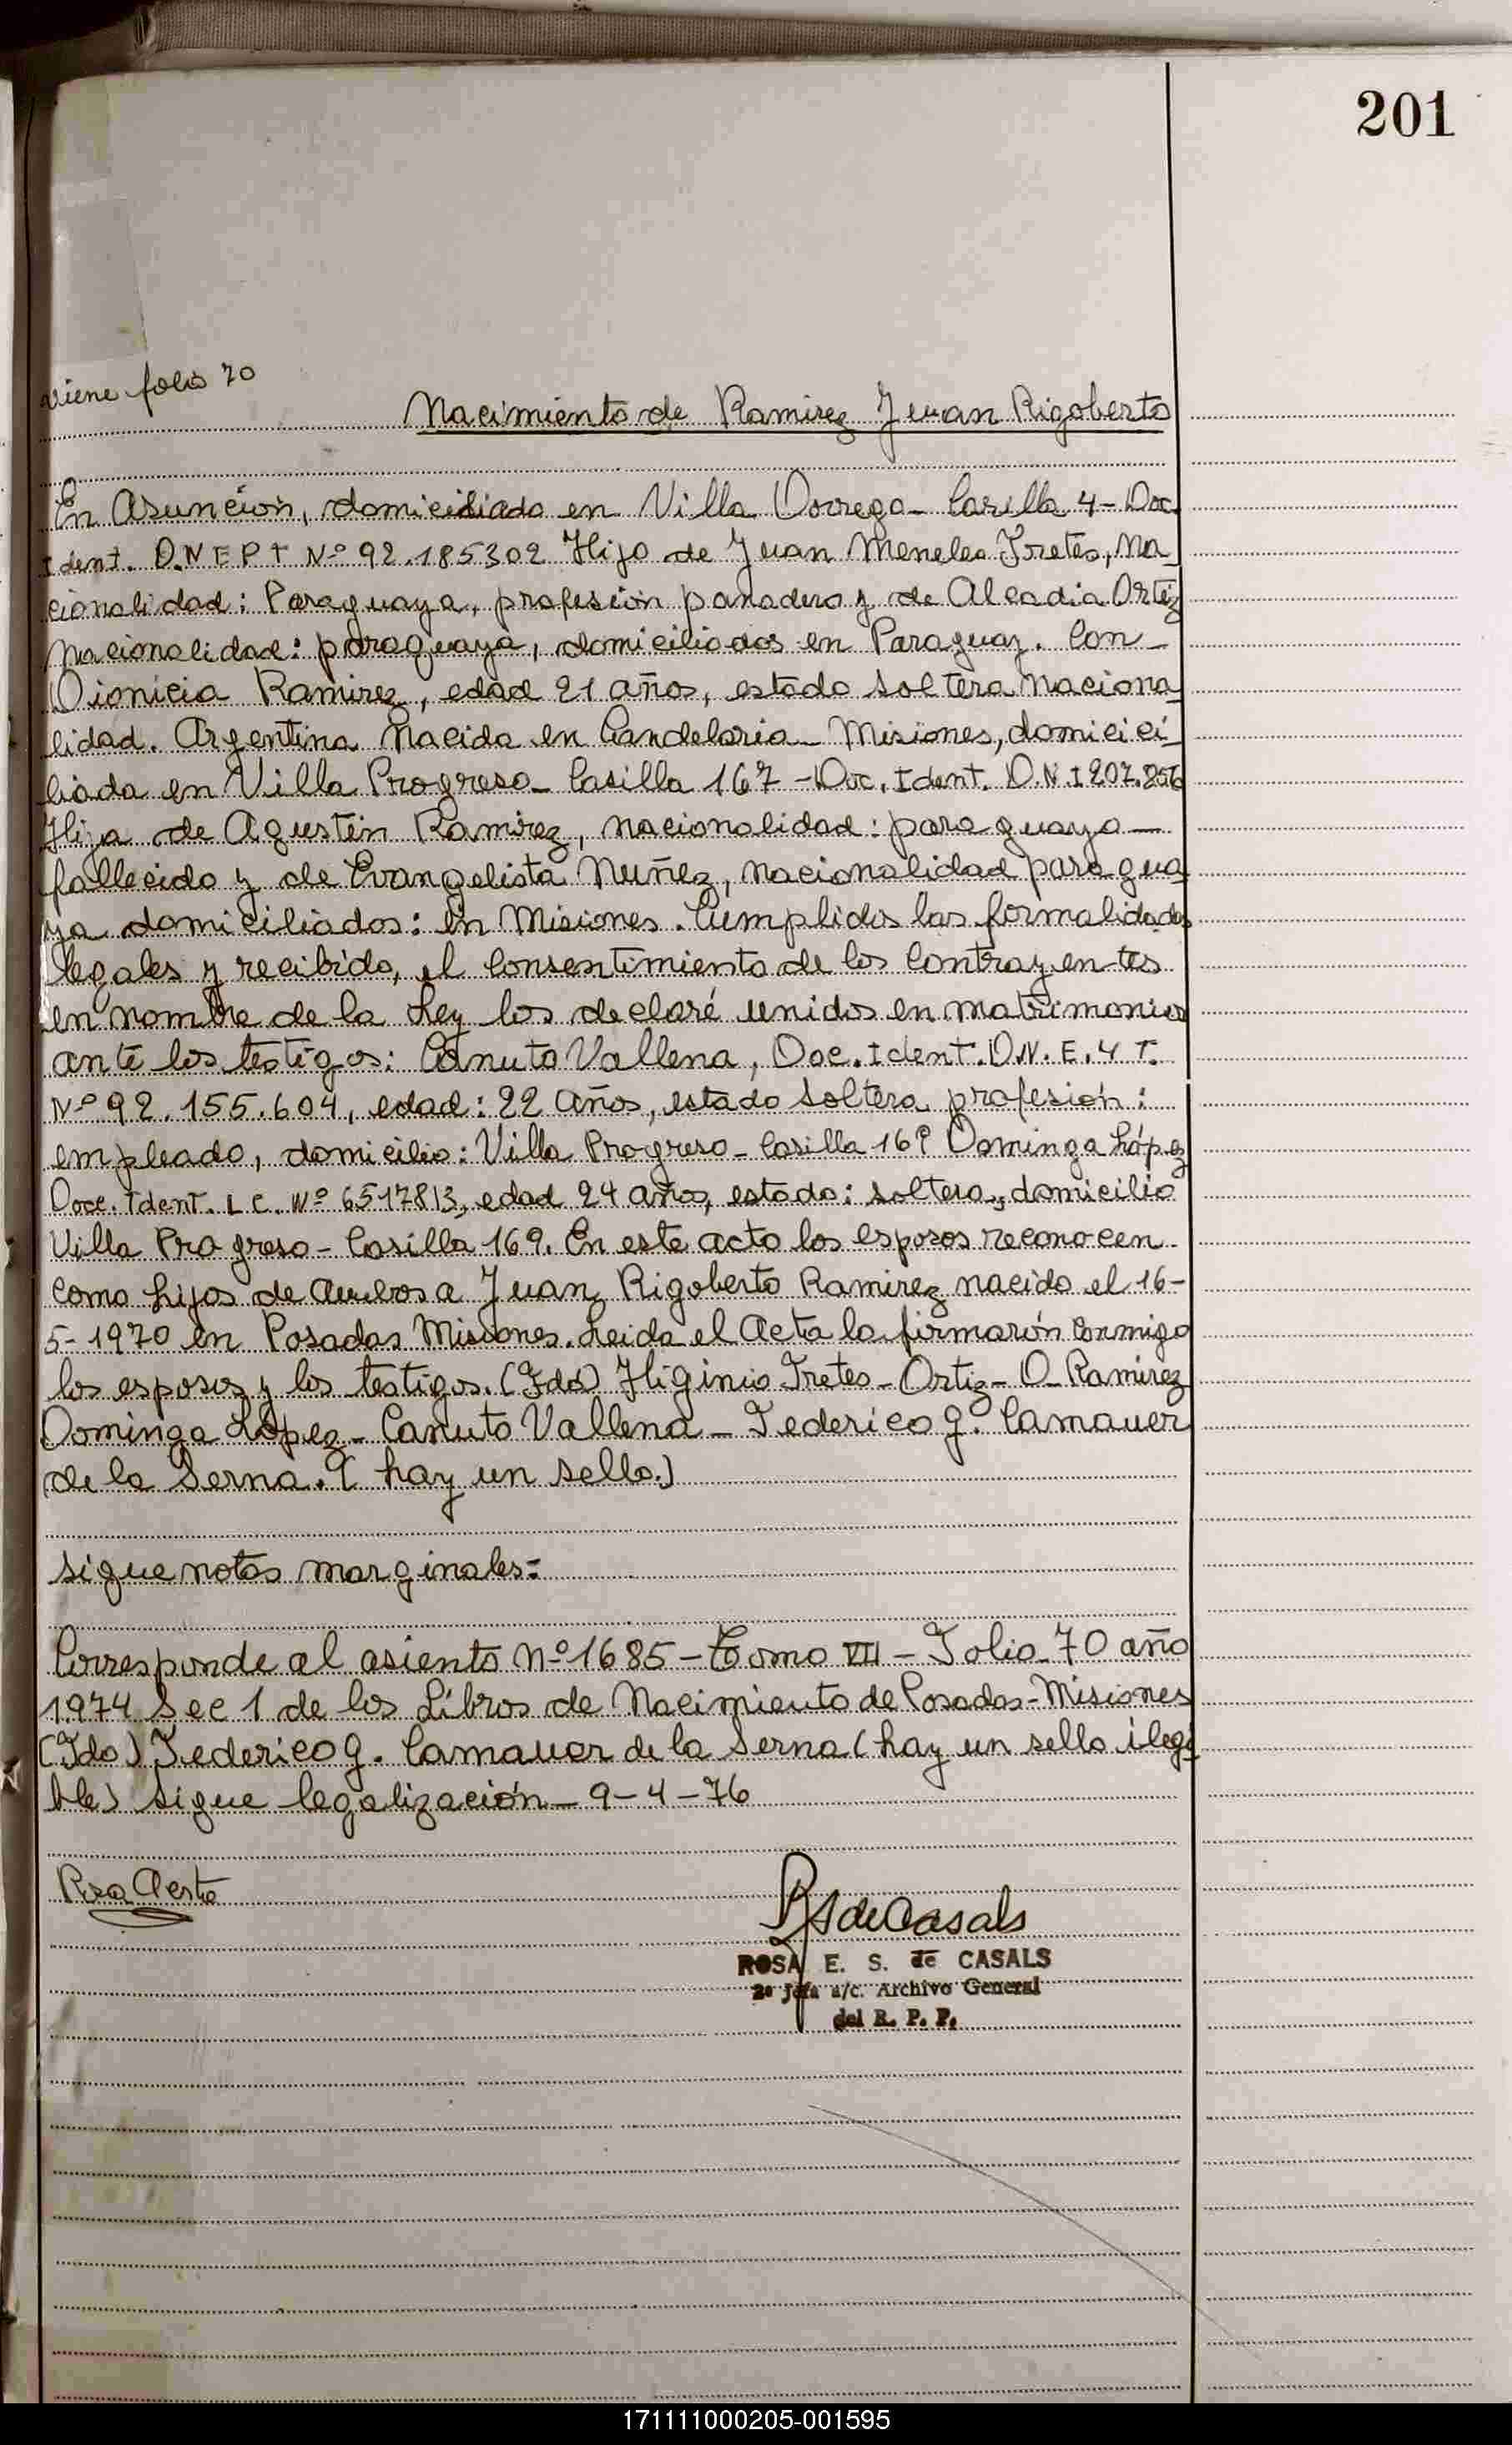 201
viene folio 70
Nacimiento de Ramirez Juan Rigoberto
En Asunción, domiciliado en Villa Dorrego - Casilla 4 - Doc.
Ident. D.N E P T Nº 92.185302 Hijo de Juan Meneleo Fretes, Na_
cionalidad: Paraguaya, profesión panadero y de Alcadia Ortiz
nacionalidad: paraguaya, domiciliados en Paraguay. Con_
Dionicia Ramirez, edad 21 años, estado soltera naciona_
lidad. Argentina Nacida en Candelaria - Misiones, domicici_
liada en Villa Progreso - Casilla 167 - Doc. Ident. D.N.I 207.856
Hija de Agustin Ramirez, nacionalidad: paraguaya _
fallecido y de Evangelista Nuñez, nacionalidad paragua
ya domiciliados: En Misiones. Cumplidos las formalidades
legales y recibido, el consentimiento de los Contrayentes
en nombre de la Ley los declaré unidos en matrimonio
ante los testigos: Canuto Vallena, Doc. Ident. D.N. E. Y T.
Nº 92.155.604, edad: 22 años, estado soltera profesión:
empleado, domicilio: Villa Progreso - Casilla 169 Dominga López
Doce. Ident. L C. Nº 6517813, edad 24 años, estado: soltera, domicilio
Villa Progreso - Casilla 169. En este acto los esposos reconocen
como hijos de ambos a Juan Rigoberto Ramirez nacido el 16-
5-1970 en Posadas Misiones. Leida el Acta la firmarón conmigo
los esposos y los testigos. (Fdo) Higinio Fretes - Ortiz - D - Ramirez
Dominga López - Canuto Vallena - Federico G. Camauer
de la Serna. ( hay un sello.)
sigue notas marginales:
Corresponde al asiento nº 1685 - Tomo VII - Folio 70 año
1974 Sec 1 de los Libros de Nacimiento de Posadas - Misiones
(Fdo) Federico G. Camauer de la Serna (hay un sello ilegi
ble) Sigue legalización - 9-4-76
RS de Casals
ROSA E. S. de CASALS
2º Jefa a/c. Archivo General
del R. P. P.
171111000205-001595